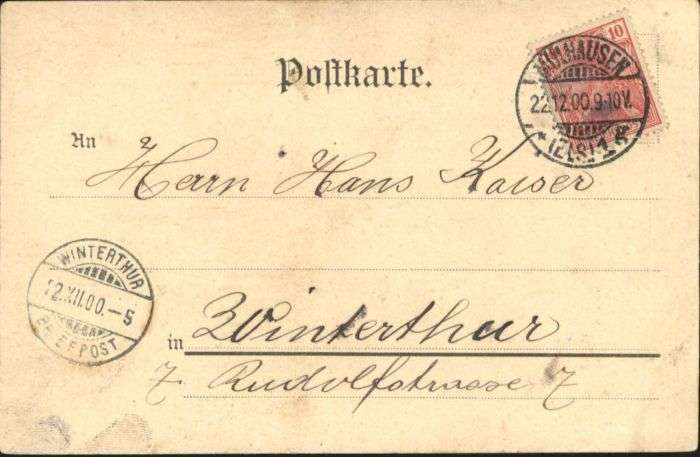 Postkarte.
10
MÜLHAUSEN
22.12.00.9-10V.
*(ELS).1.
An
Herrn Hans Kaiser
WINTERTHUR
XII.00.-5
BRIEFPOST
in Winterthur
7 Rudolfstrasse 7